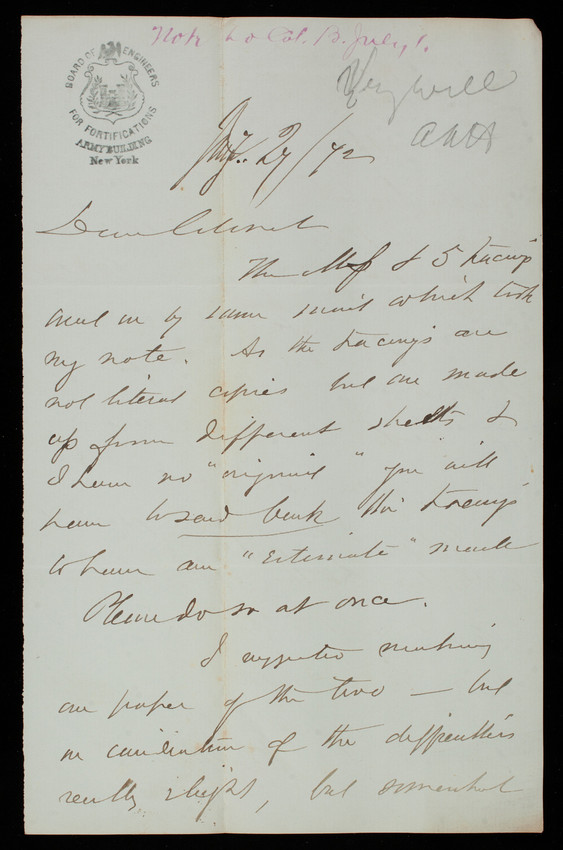 Note to Col. B. July 1.
BOARD OF ENGINEERS
FOR FORTIFICATIONS
ARMY BUILDING
New York
Very well
27/72
Dear Colonel
The Map & 5 tracings
and on by same mail which took
my note. As the tracings are
not literal copies but are made
up from different sheets &
I have no "original" you will
have to send back the tracings
to have an "Estimate" made
Please do so at once.
I making
one paper of the two — but
on of the difficulties
really slight, but somewhat